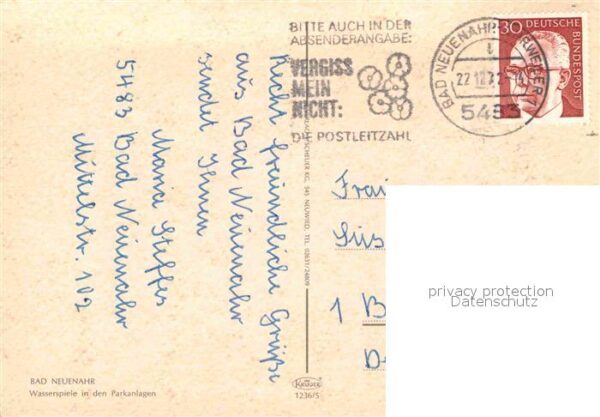 BITTE AUCH IN DER
ABSENDERANGABE:
VERGISS
MEIN
NICHT:
DIE POSTLEITZAHL
BAD NEUENAHR-AHRWEILER 1
22.12.72
5483
30 DEUTSCHE
BUNDESPOST
Recht freundliche Grüße
aus Bad Neuenahr
sendet Ihnen
Maria Steffes
5483 Bad Neuenahr
Mittelstr. 102
KG, 545 NEUWIED, TEL. 02631/24809
1 B
privacy protection
Datenschutz
BAD NEUENAHR
Wasserspiele in den Parkanlagen
KRÜGER
1236/5